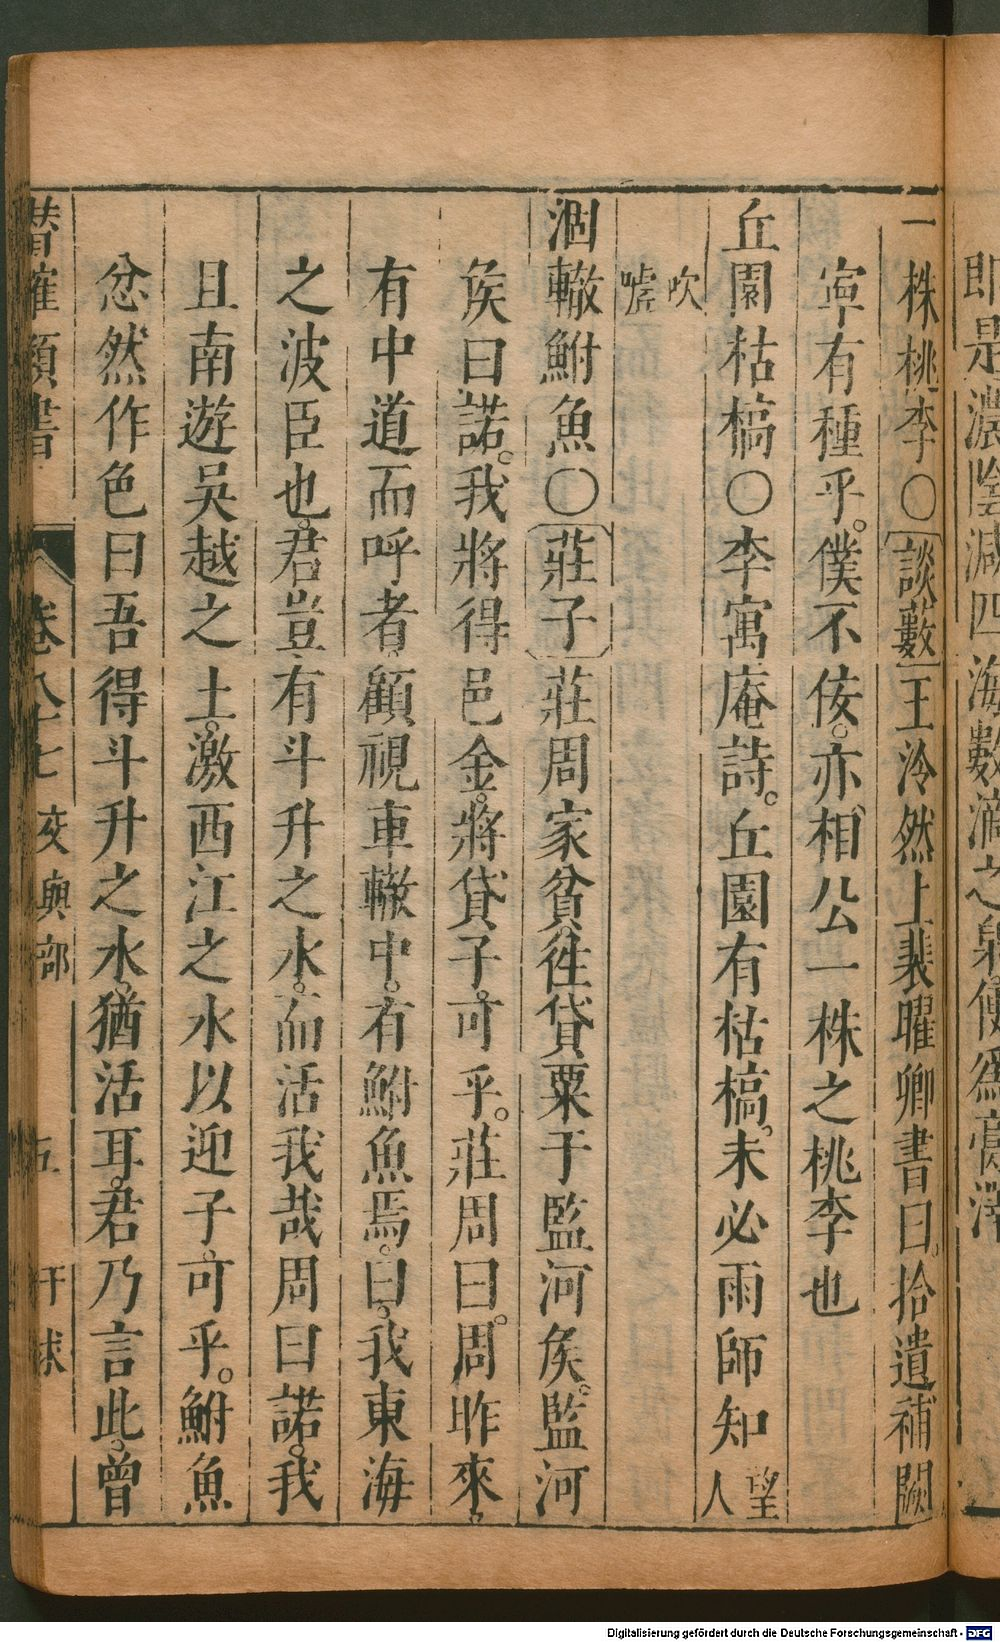 即是濃陰減四海數滴之泉便爲膏澤
一株桃李○談藪王泠然上裴曜卿書曰。拾遺補闕
寧有種乎。僕不佞。亦相公一株之桃李也
丘園枯槁○李寓庵詩。丘園有枯槁。未必雨師知望人
吹噓
涸轍鮒魚○莊子莊周家貧徃貸粟于監河侯。監河
侯曰諾。我將得邑金。將貸子。可乎。莊周曰。周昨來。
有中道而呼者。顧視車轍中。有鮒魚焉。曰。我東海
之波臣也。君豈有斗升之水。而活我哉周曰諾。我
且南遊吳越之土。激西江之水以迎子。可乎。鮒魚
忿然作色曰吾得斗升之水。猶活耳。君乃言此。曾
類書
卷八十七
亥輿部
五
Digitalisierung gefördert durch die Deutsche Forschungsgemeinschaft - DFG